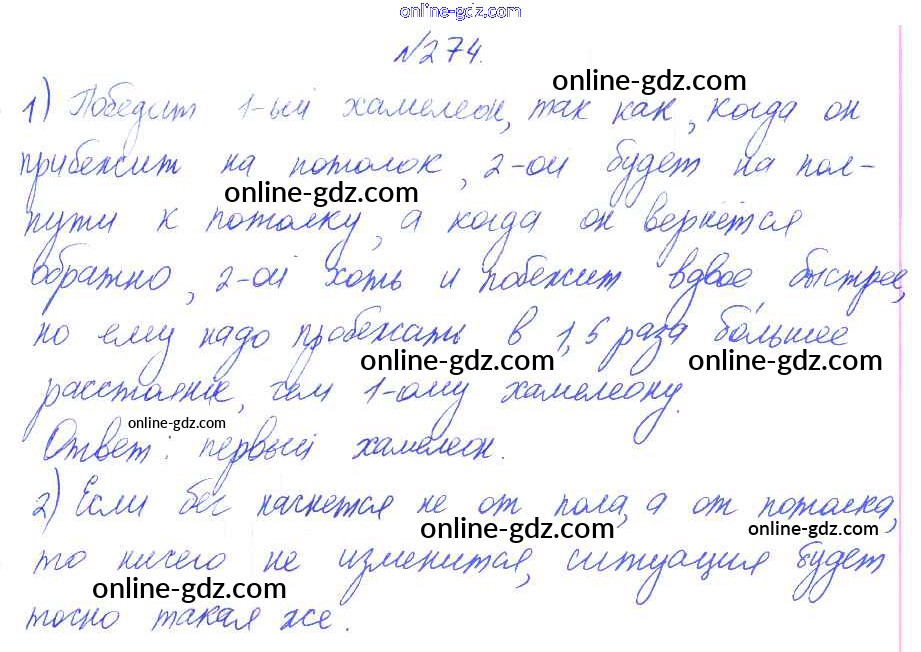 online-gdz.com
№274.
online-gdz.com
1) Победит 1-ый хамелеон, так как, когда он
прибежит на потолок, 2-ой будет на пол-
online-gdz.com
пути к потолку, а когда он вернётся
обратно, 2-ой хоть и побежит вдвое быстрее,
но ему надо пробежать в 1,5 раза бо́льшее
online-gdz.com online-gdz.com
расстояние, чем 1-ому хамелеону.
online-gdz.com
Ответ: первый хамелеон.
2) Если бег начнется не от пола, а от потолка,
online-gdz.com online-gdz.com
то ничего не изменится, ситуация будет
online-gdz.com
точно такая же.